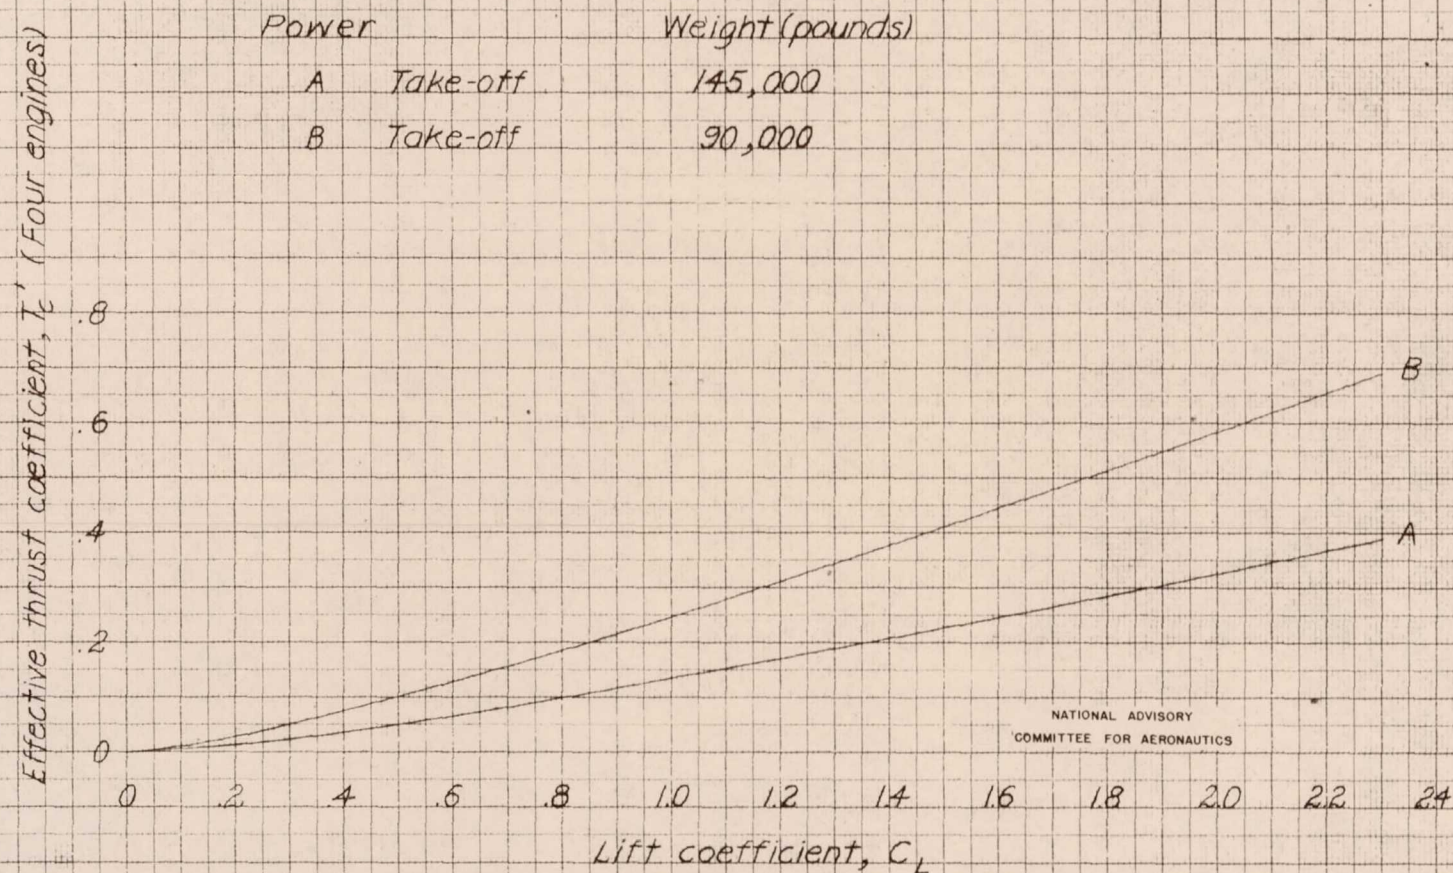 Power Weight (pounds)
A Take-off 145,000
B Take-off 90,000
Effective thrust coefficient, Tc' (Four engines)
.8
.6
.4
.2
0
B
A
NATIONAL ADVISORY
COMMITTEE FOR AERONAUTICS
0 .2 .4 .6 .8 1.0 1.2 1.4 1.6 1.8 2.0 2.2 2.4
Lift coefficient, CL